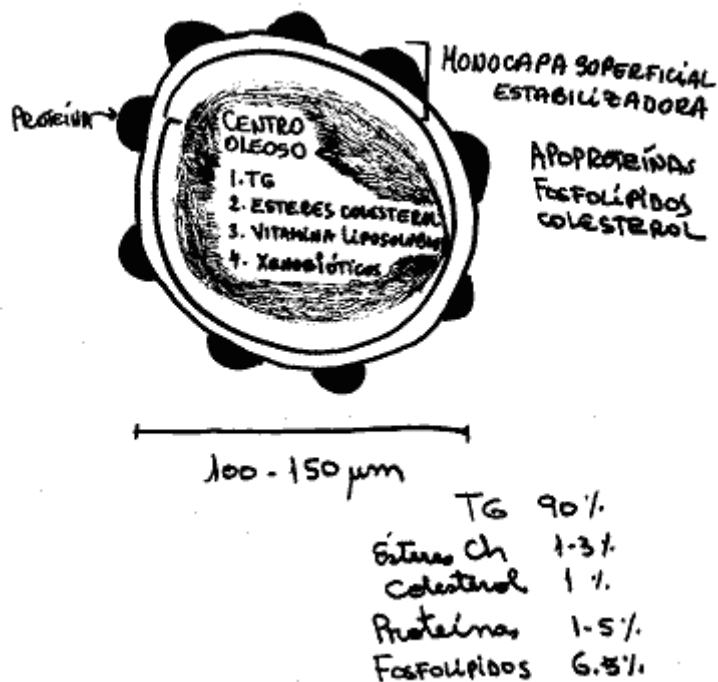 PROTEÍNA
CENTRO
OLEOSO
1. TG
2. ESTERES COLESTEROL
3. VITAMINA LIPOSOLUBLES
4. XENOBIÓTICOS
MONOCAPA SUPERFICIAL
ESTABILIZADORA
APOPROTEÍNAS
FOSFOLÍPIDOS
COLESTEROL
100 - 150 μm
TG 90%
Ésteres Ch 1-3%
Colesterol 1%
Proteínas 1-5%
FOSFOLIPIDOS 6.5%